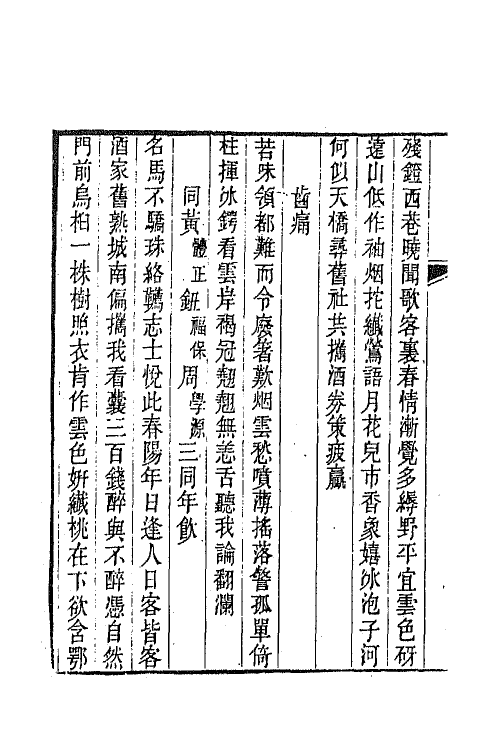 殘鐙西巷曉聞歌客裏春情漸覺多繹野平宜雲色硏
遠山低作袖烟拕纖鶯語月花兒市香象嬉冰泡子河
何似天橋尋舊社共攜酒券策疲羸
齒痛
苦味領都難而令廢箸歎烟雲愁噴薄搖落警孤單倚
柱揮冰鍔看雲岸褐冠翹翹無恙舌聽我論翻瀾
同黃體正鈕福保周學源三同年飲
名馬不驕珠絡韉志士悅此春陽年日逢人日客皆客
酒家舊熟城南偏攜我看囊三百錢醉與不醉憑自然
門前烏桕一株樹照衣肯作雲色姸纖桃在下欲含鄂